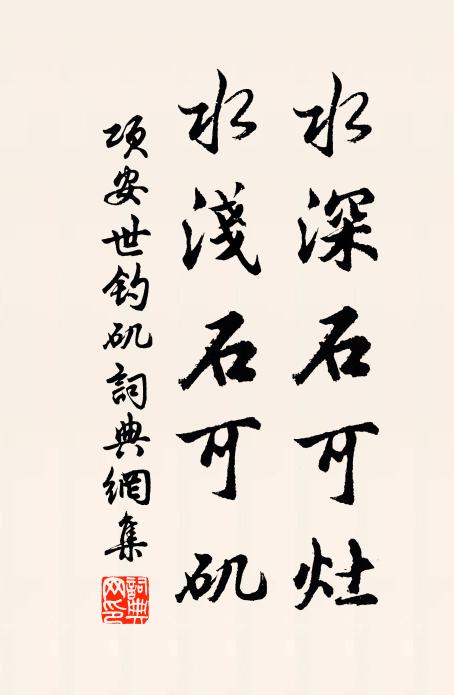 水深石可灶
水淺石可矶
項安世钓矶詞典網集
詞典網印